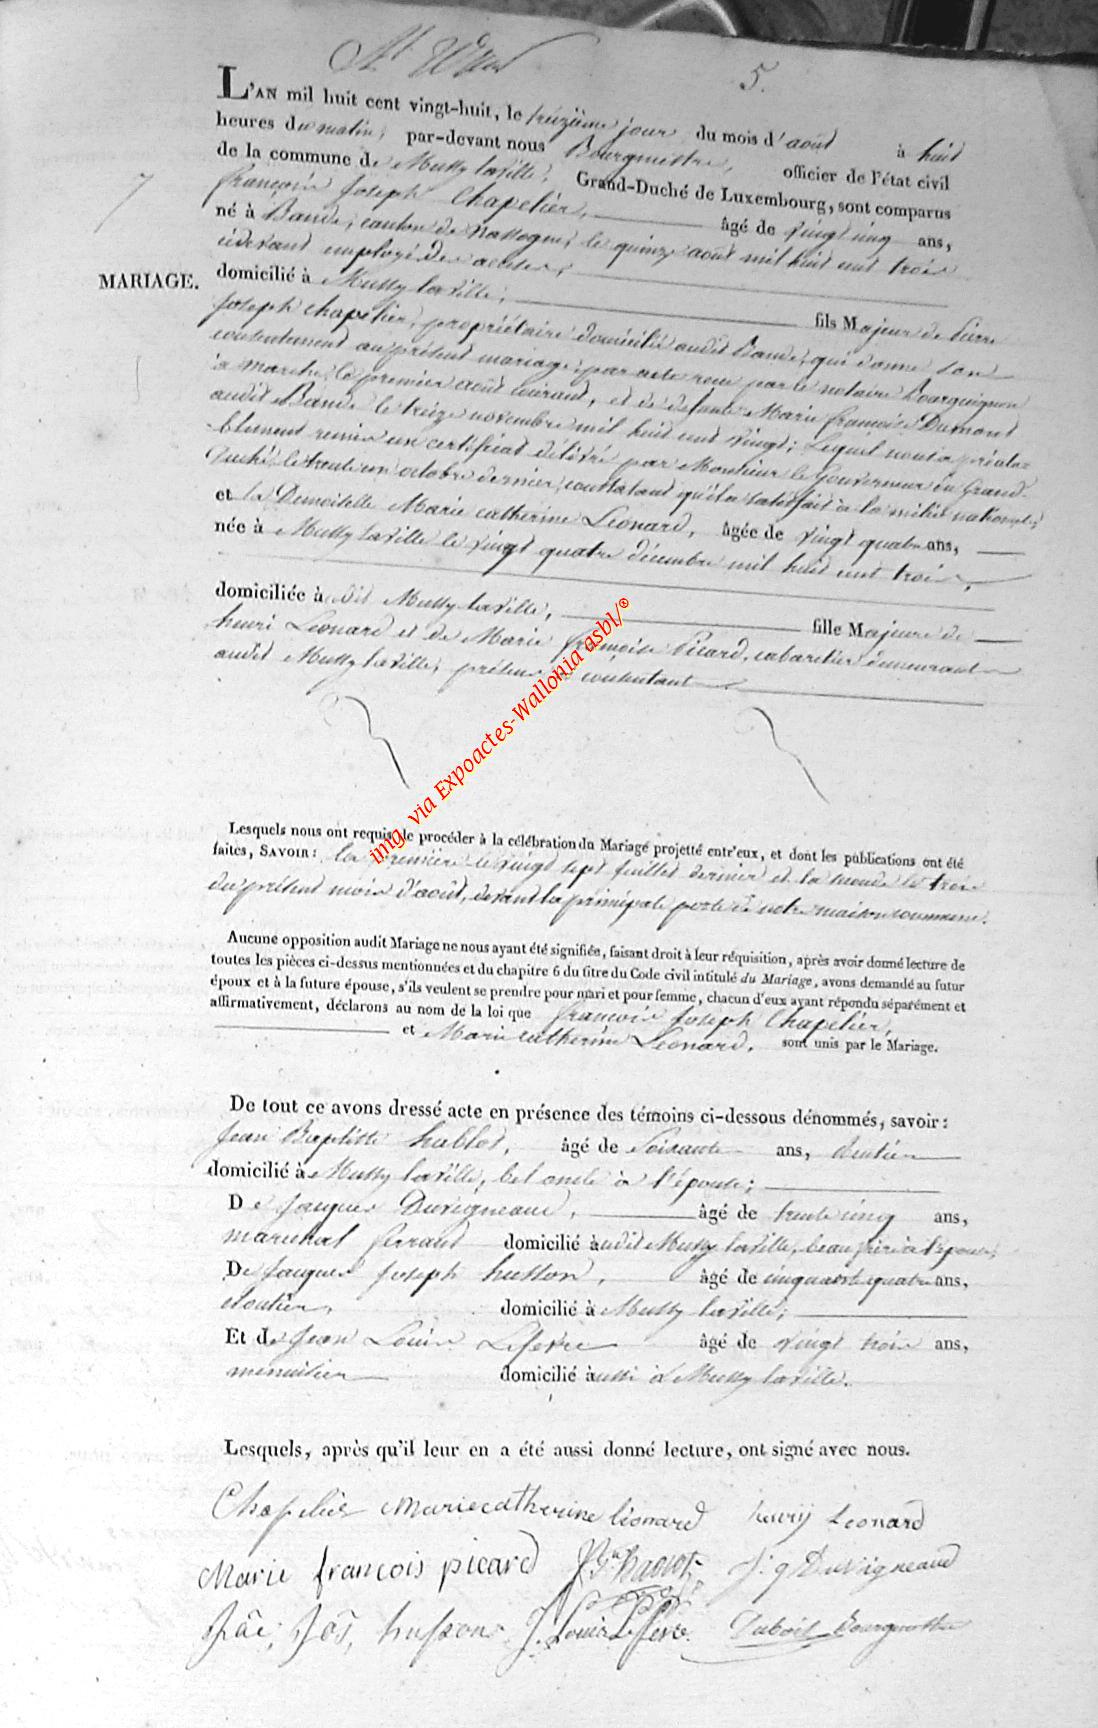 5.
L'AN mil huit cent vingt-huit, le treizième jour du mois d'août à huit
heures du matin, par-devant nous Bourgmestre, officier de l'état civil
de la commune de Mussy laville, Grand-Duché de Luxembourg, sont comparus
françois Joseph Chapelier, âgé de vingt cinq ans,
né à Bande, canton de Nassogne, le quinze août mil huit cent trois
cidevant employé des accises,
MARIAGE.
domicilié à Mussy laville, fils Majeur de Pierre
Joseph Chapelier, propriétaire domicilié audit Bande, qui donne son
consentement au présent mariage par acte reçu par le notaire Bourguignon
à marche, le premier août courant, et de defunte Marie françoise Dumont
audit Bande le treize novembre mil huit cent vingt; Lequel nous a préala-
blement remis un certificat délivré par Monsieur le Gouverneur du Grand-
Duché, le trente un octobre dernier, constatant qu'il a satisfait à la milice nationale,
et la Demoiselle Marie catherine Léonard, âgée de vingt quatre ans,
née à Mussy laville le vingt quatre décembre mil huit cent trois,
domiciliée à dit Mussy laville, fille Majeure de
henri Léonard et de Marie françoise Picard, cabaretier demeurant
audit Mussy laville, présens et consentant
Lesquels nous ont requis de procéder à la célébration du Mariage projetté entr'eux, et dont les publications ont été
faites, SAVOIR: la première le vingt sept juillet dernier et la seconde le trois
du présent mois d'août, devant la principale porte de notre maison commune.
Aucune opposition audit Mariage ne nous ayant été signifiée, faisant droit à leur réquisition, après avoir donné lecture de
toutes les pièces ci-dessus mentionnées et du chapitre 6 du titre du Code civil intitulé du Mariage, avons demandé au futur
époux et à la future épouse, s'ils veulent se prendre pour mari et pour femme, chacun d'eux ayant répondu séparément et
affirmativement, déclarons au nom de la loi que françois Joseph Chapelier,
et Marie catherine Léonard, sont unis par le Mariage.
De tout ce avons dressé acte en présence des témoins ci-dessous dénommés, savoir:
Jean Baptiste hablot, âgé de Soixante ans, Rentier
domicilié à Mussy laville, bel oncle à l'épouse;
De Jacques Duvigneaud, âgé de trente cinq ans,
marechal ferrant domicilié audit Mussy laville, beau frère à l'épouse,
De Jacques Joseph husson, âgé de cinquante quatre ans,
cloutier, domicilié à Mussy laville;
Et de Jean Louis Lefevre âgé de vingt trois ans,
menuisier domicilié aussi à Mussy laville.
Lesquels, après qu'il leur en a été aussi donné lecture, ont signé avec nous.
Chapelier Marie catherine léonard henry Leonard
Marie françois picard J. q Duvigneaud
Jâc, Jôs, husson J. Louis Lefevre. Dubois Bourgmestre
img. via Expoactes-Wallonia asbl/®